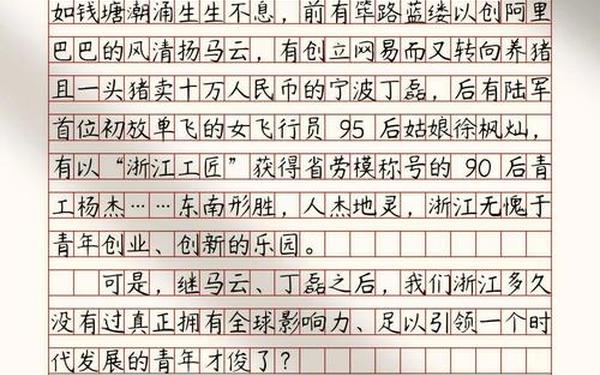 如钱塘潮涌生生不息，前有筚路蓝缕以创阿里
巴巴的风清扬马云，有创立网易而又转向养猪
且一头猪卖十万人民币的宁波丁磊，后有陆军
首位初放单飞的女飞行员 95 后姑娘徐枫灿，
有以“浙江工匠”获得省劳模称号的 90 后青
工杨杰……东南形胜，人杰地灵，浙江无愧于
青年创业、创新的乐园。
可是，继马云、丁磊之后，我们浙江多久
没有过真正拥有全球影响力、足以引领一个时
代发展的青年才俊了？